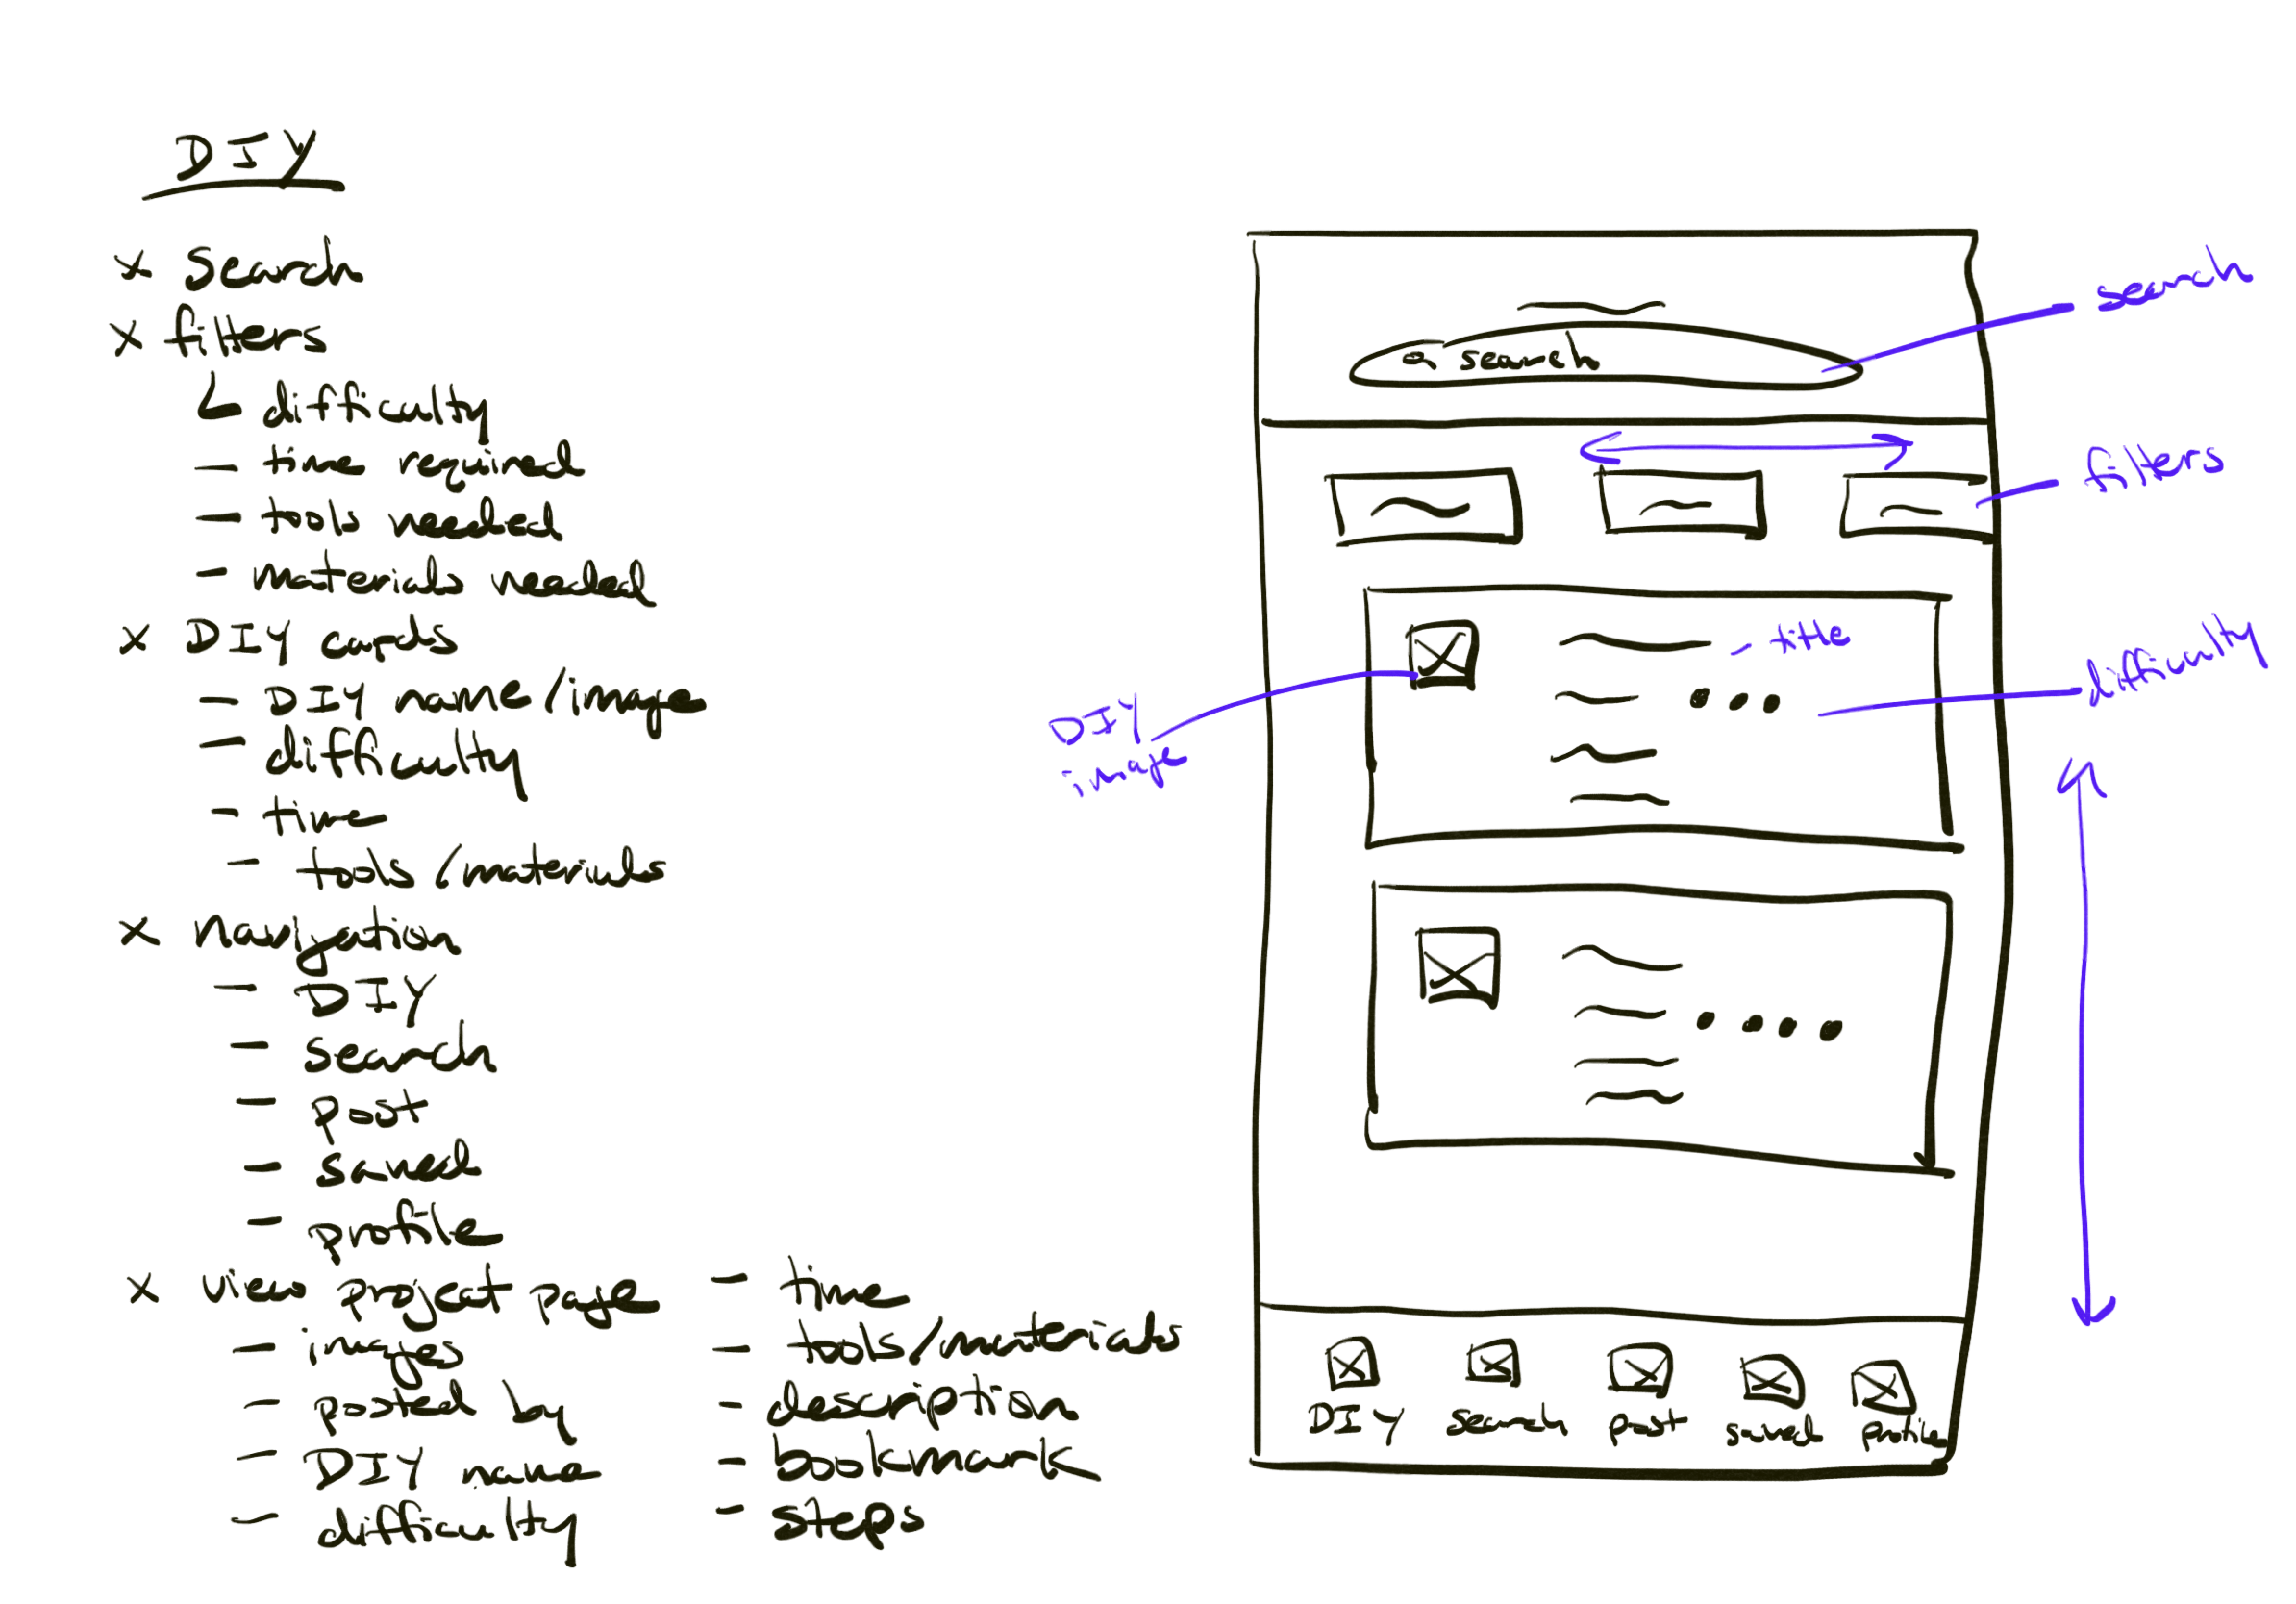 DIY
x search
x filters
└ difficulty
- time required
- tools needed
- materials needed
x DIY cards
- DIY name/image
- difficulty
- time
- tools/materials
x navigation
- DIY
- search
- post
- saved
- profile
x view project page
- images
- posted by
- DIY name
- difficulty
- time
- tools/materials
- description
- bookmark
- steps
search
search
filters
- title
difficulty
DIY
image
DIY search post saved profile